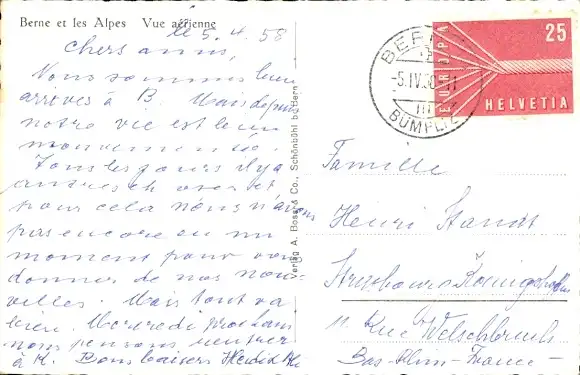 Berne et les Alpes Vue aérienne
le 5. 4. 58
Chers amis,
Nous sommes bien
arrivés à B. Mais depuis
notre vie est bien
mouvementée.
Tous les jours il y a
autre
pour cela nous n'avons
pas encore eu un
moment pour vous
donner de nos nou-
velles. Mais tout va
bien. Mercredi prochain
nous pensons rentrer
à K. Bons baisers Heidi
Verlag A. Boss & Co., Schönbühl b. Bern
BERN
-5.IV.58-11
BÜMPLIZ
EUROPA
25
HELVETIA
Famille
Henri Standt
Strasbourg Koenigshoffen
11 Rue Welschbruch
Bas-Rhin - France -